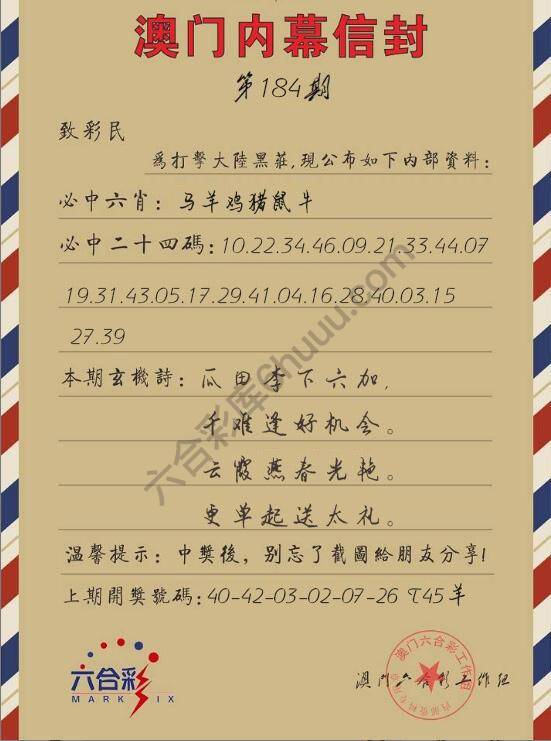 澳门内幕信封
第184期
致彩民
為打擊大陸黑莊,現公布如下内部資料:
必中六肖: 马羊鸡猪鼠牛
必中二十四碼:10.22.34.46.09.21.33.44.07
19.31.43.05.17.29.41.04.16.28.40.03.15
27.39
本期玄機詩: 瓜田李下六加,
千难逢好机会。
云霞燕春光艳。
更单起送太礼。
温馨提示: 中獎後, 别忘了截圖給朋友分享!
上期開獎號碼:40-42-03-02-07-26 T45羊
六合彩库6huuu.com
六合彩
MARK SIX
澳门六合彩工作组
澳门六合彩工作组